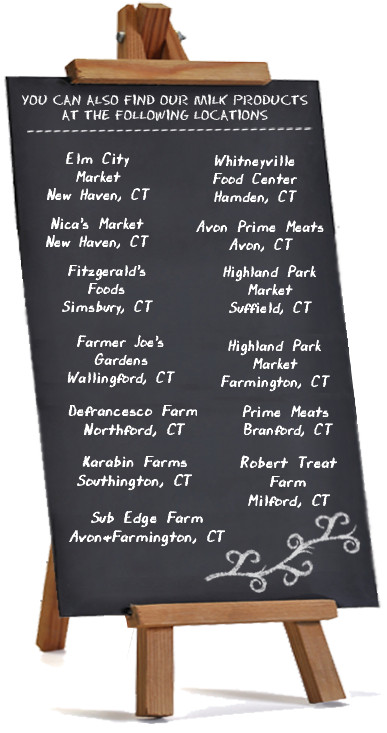 YOU CAN ALSO FIND OUR MILK PRODUCTS
AT THE FOLLOWING LOCATIONS
Elm City
Market
New Haven, CT
Nica's Market
New Haven, CT
Fitzgerald's
Foods
Simsbury, CT
Farmer Joe's
Gardens
Wallingford, CT
Defrancesco Farm
Northford, CT
Karabin Farms
Southington, CT
Sub Edge Farm
Avon+Farmington, CT
Whitneyville
Food Center
Hamden, CT
Avon Prime Meats
Avon, CT
Highland Park
Market
Suffield, CT
Highland Park
Market
Farmington, CT
Prime Meats
Branford, CT
Robert Treat
Farm
Milford, CT